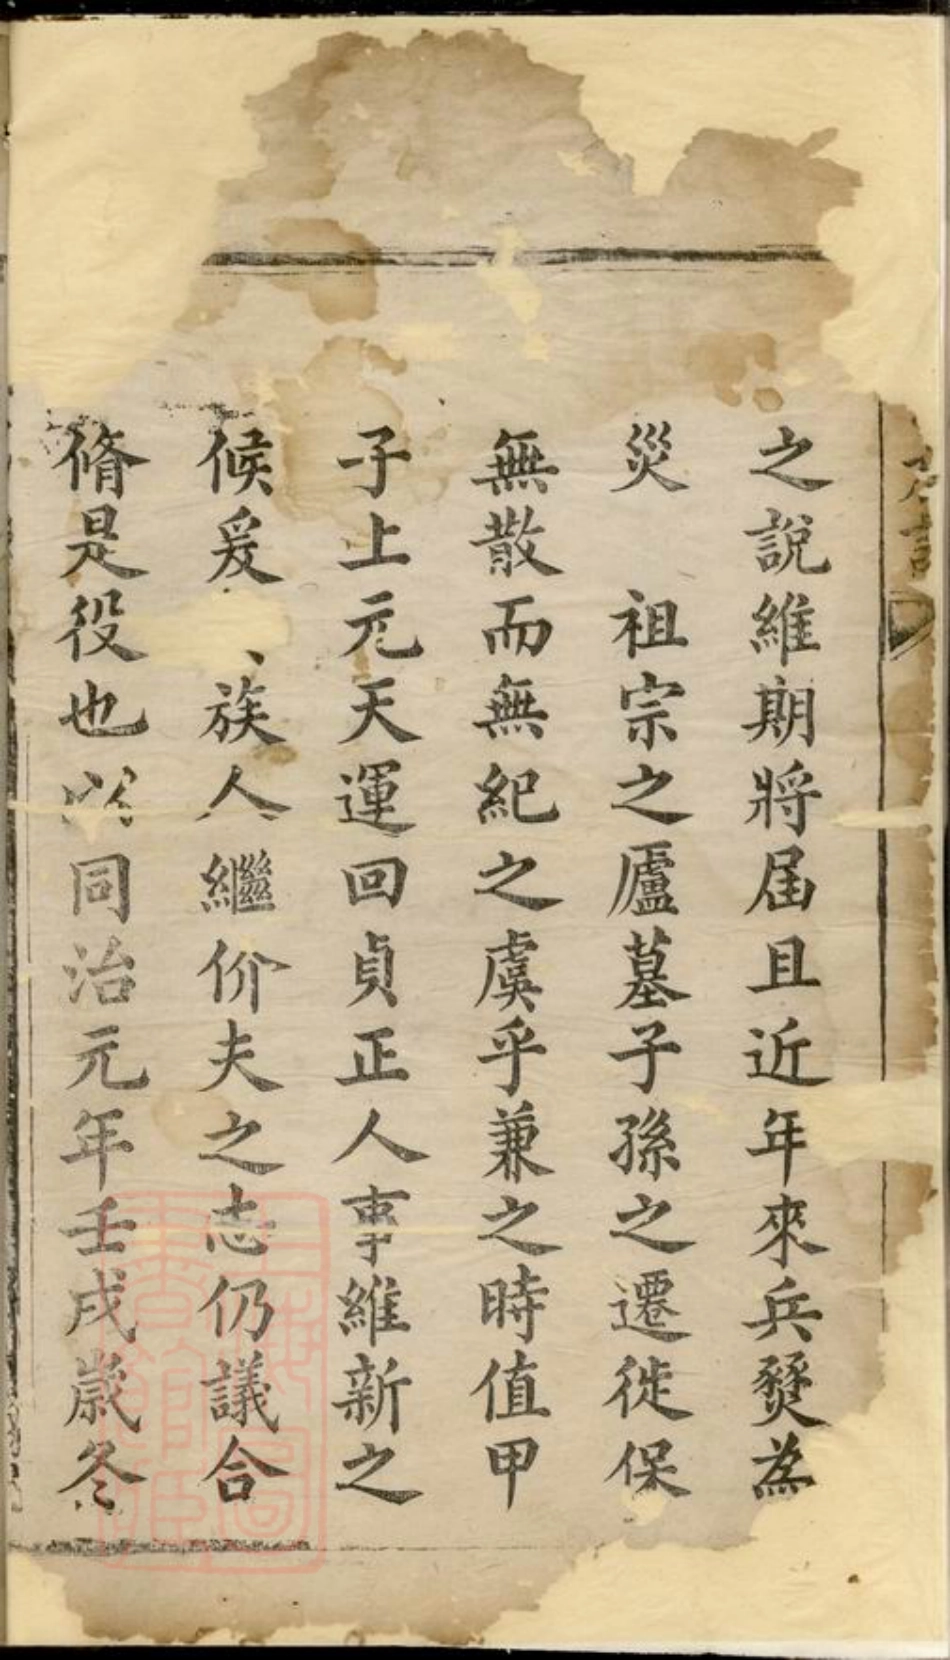 之說維期將屆且近年來兵燹為
災　祖宗之廬墓子孫之遷徙保
無散而無紀之虞乎兼之時值甲
子上元天運回貞正人事維新之
候爰族人繼价夫之志仍議合
脩是役也同治元年壬戌歲冬